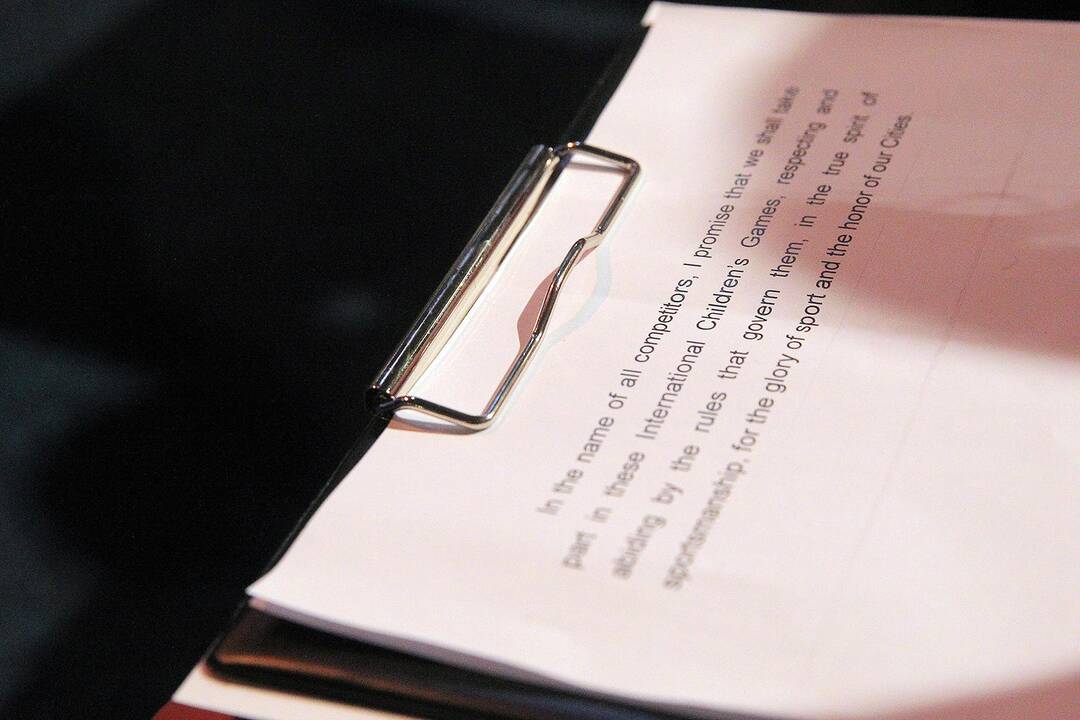 In the name of all competitors, I promise that we shall take
part in these International Children's Games, respecting and
abiding by the rules that govern them, in the true spirit of
sportsmanship, for the glory of sport and the honor of our Cities.